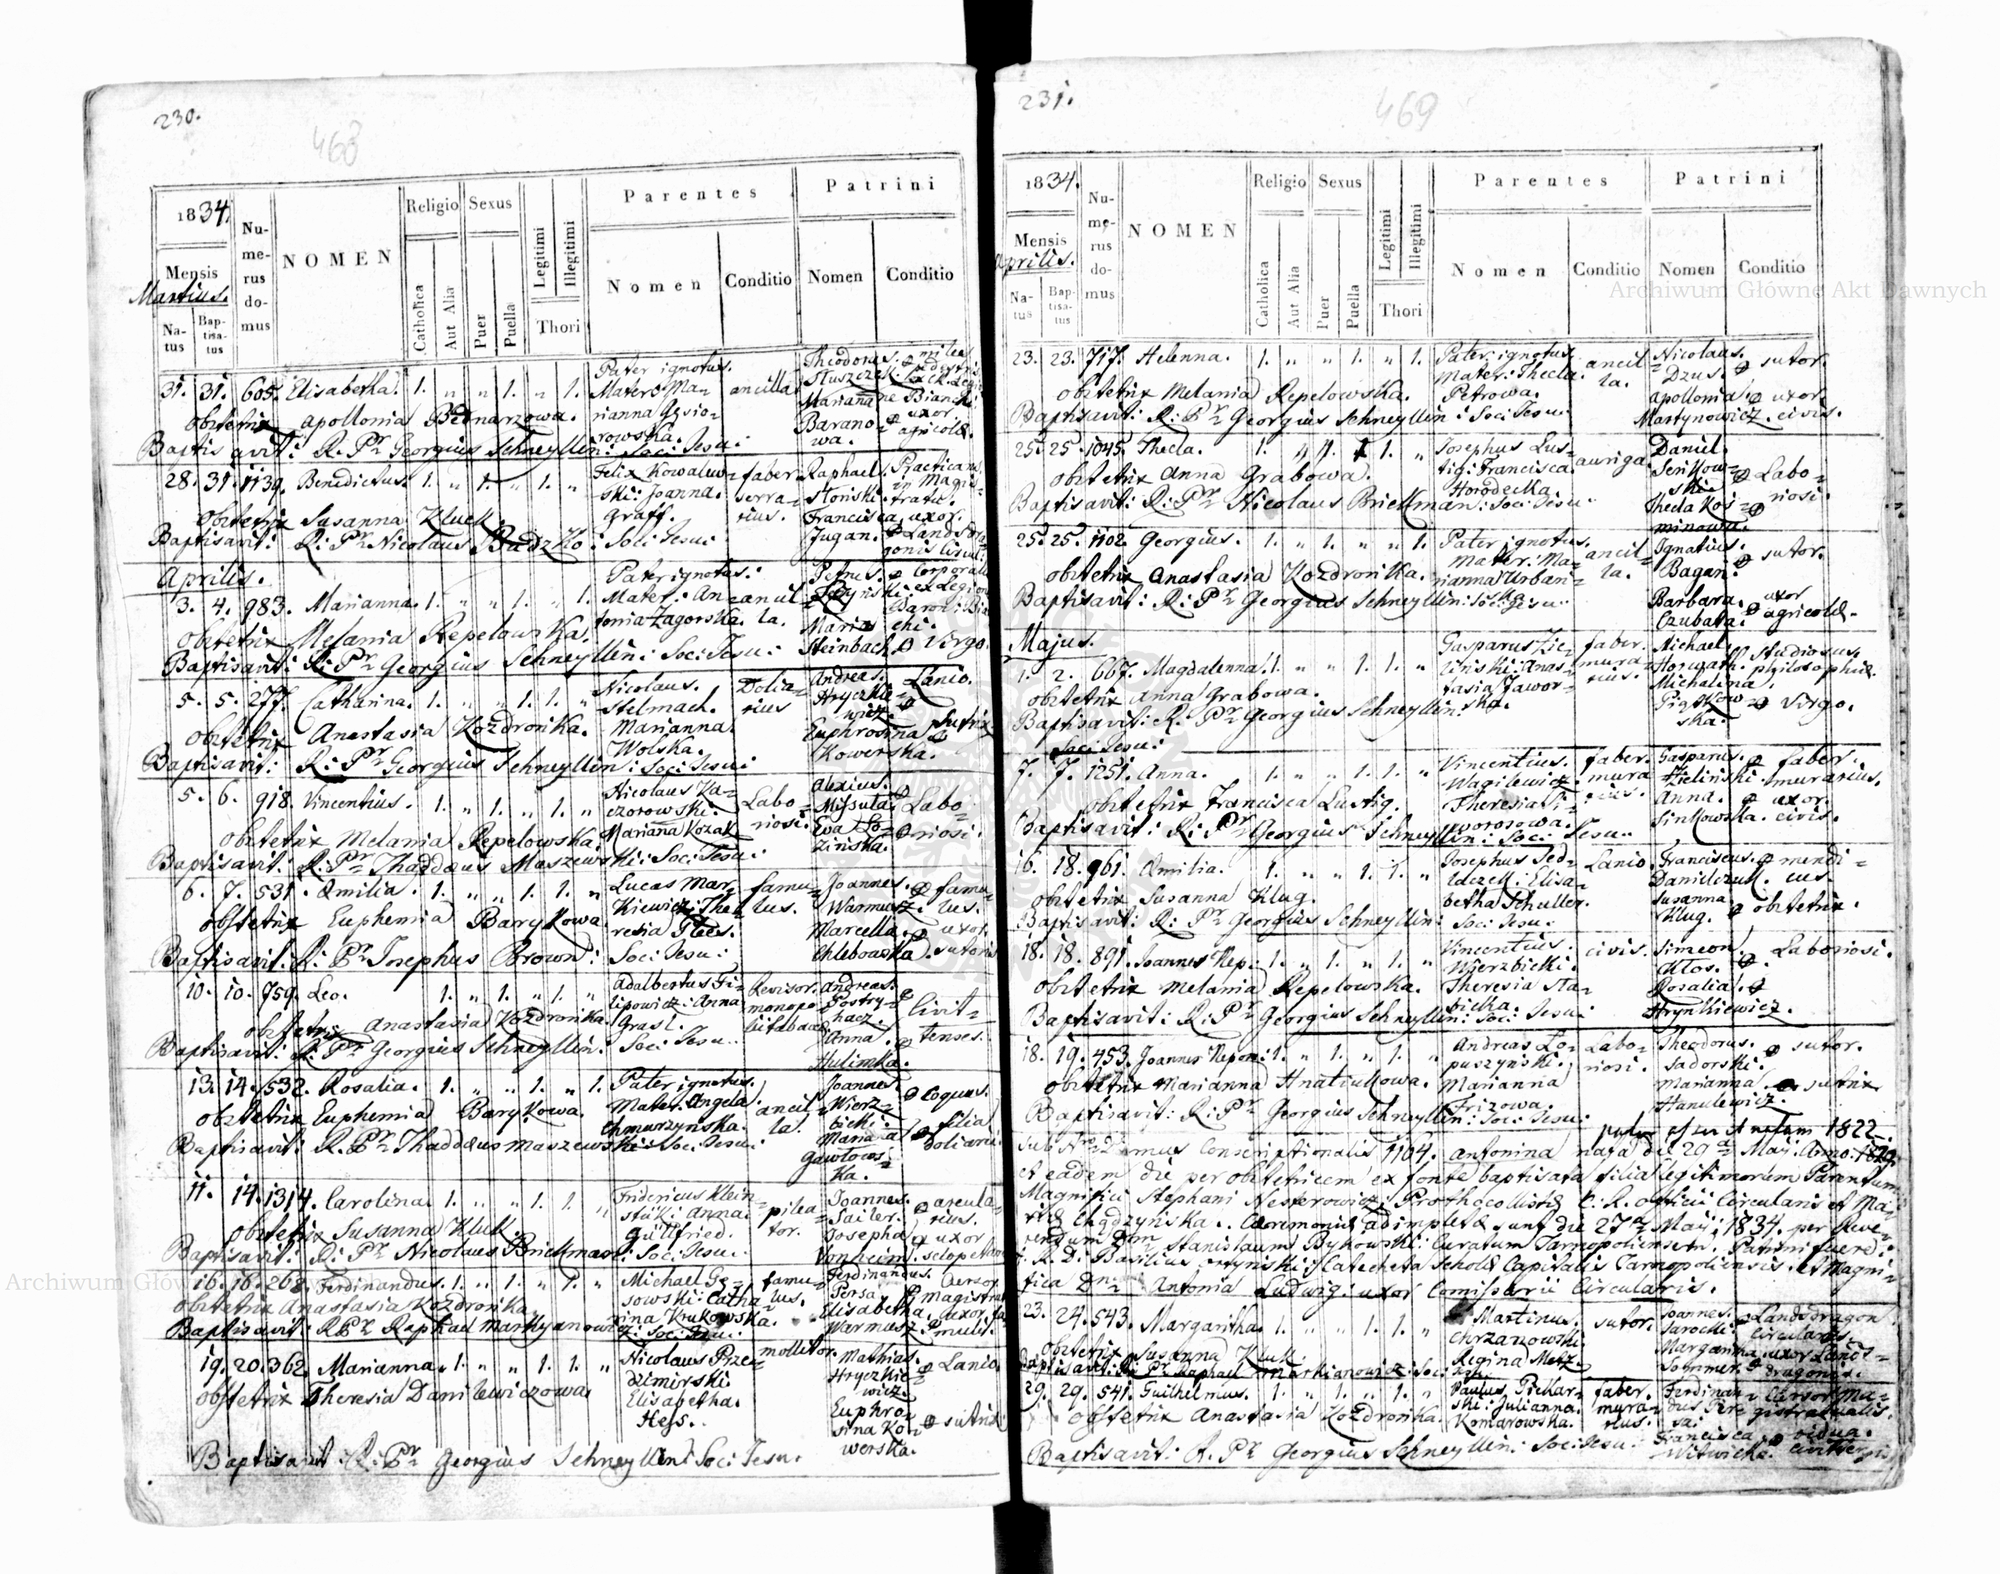 230.
468
1834.
Numerus domus
NOMEN
Religio
Sexus
Legitimi
Illegitimi
Parentes
Patrini
Mensis
Martius.
Natus
Baptisatus
Catholica
Aut Alia
Puer
Puella
Thori
Nomen
Conditio
Nomen
Conditio
31. 31. 605. Elisabetha. 1. „ „ 1. „ 1. Pater ignotus. Mater: Marianna ancilla Theodorus.
Marianna Baranowa. uxor agricolæ.
obstetrix Apollonia Bednarzowa.
Baptisavit: R: Pr Georgius Schneyllin: Soc: Jesu:
28. 31. 1139. Benedictus. 1. „ 1. „ 1. „ Felix Kowalewski: Joanna. Graff. faber serrarius. Raphael Practicans in Magistratu.
Francisca Jugan. uxor.
obstetrix Susanna Kluck
Baptisavit: R: Pr Nicolaus Badzko: Soc: Jesu:
Aprilis.
3. 4. 983. Marianna. 1. „ „ 1. „ 1. Pater ignotus: Mater: Antonia Zagorska. ancilla. Petrus
Maria Steinbach Virgo.
obstetrix Melania Repelowska.
Baptisavit: R: Pr Georgius Schneyllin: Soc: Jesu:
5. 5. 277. Catharina. 1. „ „ 1. 1. „ Nicolaus. Stelmach. Marianna. Wolska. Doliarius Andreas. Hryczkiewicz. Lanio.
Euphrosina Kowerska. sutrix
obstetrix Anastasia Kozdronka.
Baptisavit: R: Pr Georgius Schneyllin: Soc: Jesu:
5. 6. 918. Vincentius. 1. „ 1. „ 1. „ Nicolaus Kaczorowski. Mariana Kozak Laboriosi. Alexius. Mysula Eva Lozinska. Laboriosi.
obstetrix Melania Repelowska.
Baptisavit: R: Pr Thaddæus Maszewski: Soc: Jesu:
6. 7. 531. Æmilia. 1. „ „ 1. 1. „ Lucas Markiewicz: Theresia famulus. Joannes. Warmusz. famulus.
Marcella. Chlebowska. uxor sutoris
obstetrix Euphemia Barykowa
Baptisavit: R: Pr Josephus Brown: Soc: Jesu:
10. 10. 759. Leo. 1. „ 1. „ 1. „ Adalbertus Filipowicz: Anna Grasl. Revisor Andreas. Postryhacz. Anna Hulimka. Civittenses.
obstetrix Anastasia Kozdronka.
Baptisavit: R: Pr Georgius Schneyllin. Soc: Jesu:
13. 14. 532. Rosalia. 1. „ „ 1. „ 1. Pater ignotus. Mater. Angela. Chmurzynska. ancilla. Joannes. Wierzbicki. coquus.
Maria filia doliarii
obstetrix Euphemia Barykowa.
Baptisavit: R: Pr Thaddæus Maszewski: Soc: Jesu:
11. 14. 1314. Carolina. 1. „ „ 1. 1. „ Fridericus Anna. Güttfried. pileator. Joannes. Sailer. Josepha uxor
obstetrix Susanna Kluck.
Baptisavit: R: Pr Nicolaus Brickman: Soc: Jesu:
16. 16. 268. Ferdinandus. 1. „ 1. „ 1. „ Michael Gesowski: Catharina Krukowska. famulus. Ferdinandus. Persa. Elisabetha Warmusz. uxor
obstetrix Anastasia Kozdronka.
Baptisavit: R: Pr Raphael Markyanowicz: Soc: Jesu:
19. 20. 362. Marianna. 1. „ „ 1. 1. „ Nicolaus Przedzimirski Elisabetha. Hejs. mollitor. Mathias. Hryczkiewicz. Lanio
Euphrosina Kowerska. sutrix
obstetrix Theresia Danilewiczowa
Baptisavit: R: Pr Georgius Schneyllin: Soc: Jesu.
231.
469
1834.
Numerus domus
NOMEN
Religio
Sexus
Legitimi
Illegitimi
Parentes
Patrini
Mensis
Aprilis.
Natus
Baptisatus
Catholica
Aut Alia
Puer
Puella
Thori
Nomen
Conditio
Nomen
Conditio
Archiwum Główne Akt Dawnych
23. 23. 717. Helenna. 1. „ „ 1. „ 1. Pater: ignotus. Mater: Thecla. Petrowa. ancilla. Nicolaus. Dzus. sutor.
Apollonia. Martynowicz. uxor civis.
obstetrix Melania Repelowska.
Baptisavit: R: Pr Georgius Schneyllin: Soc: Jesu:
25. 25. 1045. Thecla. 1. „ „ 1. 1. „ Josephus Lustig: Francisca Horodecka. auriga. Daniel. Senkowski. Thecla Kosminowa. Laboriosi.
obstetrix Anna Grabowa.
Baptisavit: R: Pr Nicolaus Brickman: Soc: Jesu:
25. 25. 1102. Georgius. 1. „ 1. „ „ 1. Pater ignotus. Mater: Marianna Urbanska. ancilla. Ignatius. Bagan. sutor.
Barbara. Czubata. uxor agricolæ.
obstetrix Anastasia Kozdronka.
Baptisavit: R: Pr Georgius Schneyllin: Soc: Jesu:
Majus.
1. 2. 667. Magdalenna. 1. „ „ 1. 1. „ Gasparus Zielinski: Anastasia Jaworska. faber murarius. Michael Horwath. studiosus philosophiæ.
Michalina. Piątkowska. Virgo.
obstetrix Anna Grabowa.
Baptisavit: R: Pr Georgius Schneyllin:
Soc: Jesu:
7. 7. 1251. Anna. 1. „ „ 1. 1. „ Vincentius. Wagilewicz Theresia faber murarius. Gasparus. Zieliński faber. murarius.
Anna. Sinkowska. uxor. civis.
obstetrix Francisca Lustig.
Baptisavit: R: Pr Georgius Schneyllin: Soc: Jesu:
16. 18. 961. Æmilia. 1. „ „ 1. 1. „ Josephus Sedlaczek: Elisabetha Schuller. Lanio. Franciscus. Danilczuk. mendicus.
Susanna Klug. obstetrix.
obstetrix Susanna Klug.
Baptisavit: R: Pr Georgius Schneyllin: Soc: Jesu:
18. 18. 891. Joannes Nep: 1. „ 1. „ 1. „ Vincentius. Wierzbicki. Theresia civis. Simeon. Kłos. Rosalia. Hrynkiewicz. Laboriosi.
obstetrix Melania Repelowska.
Baptisavit: R: Pr Georgius Schneyllin: Soc: Jesu:
18. 19. 453. Joannes Nepom: 1. „ 1. „ 1. „ Andreas Lopuszynski. Marianna Frizowa. Laboriosi. Theodorus. Sadorski. sutor.
Marianna Hanulewicz. sutrix
obstetrix Marianna Hnatiukowa.
Baptisavit: R: Pr Georgius Schneyllin: Soc: Jesu:
natam 1822.
Sub Nro Domus Conscriptionalis 1104. Antonina nata die 29a Maji Anno
et eadem die per obstetricem ex fonte baptisata filia legitimorum Parentum
Magnifici Stephani Nesterowicz: Prothocollistæ C. R. officii Circularis et Mariæ
Chądzyńska. Cæremoniæ adimpletæ sunt die 27a Maji 1834. per Reverendum
Dom Stanislaum Bykowski: Curatum Tarnopoliensem. Patrini fuere:
R. D. Basilius Catecheta Scholæ Capitalis Tarnopoliensis et Magnifica
Dna Antonia Ludwig: uxor Comissarii Circularis.
23. 24. 543. Margaritha. 1. „ „ 1. 1. „ Martinus. Chrzanowski. Regina Metz. sutor. Joannes. Jarocki. Landdragon circularis.
Margaritha Sommer. uxor Landdragonis.
obstetrix Susanna Kluk.
Baptisavit: R: Pr Raphael Markianowicz: Soc: Jesu:
29. 29. 541. Guilhelmus. 1. „ 1. „ 1. „ Paulus Piekarski: Julianna. Komarowska. faber. murarius. Ferdinandus Persa. Cursor Magistratualis.
Francisca Witwicka. vidua.
obstetrix Anastasia Kozdronka.
Baptisavit: R. Pr Georgius Schneyllin: Soc: Jesu:
Archiwum Główne